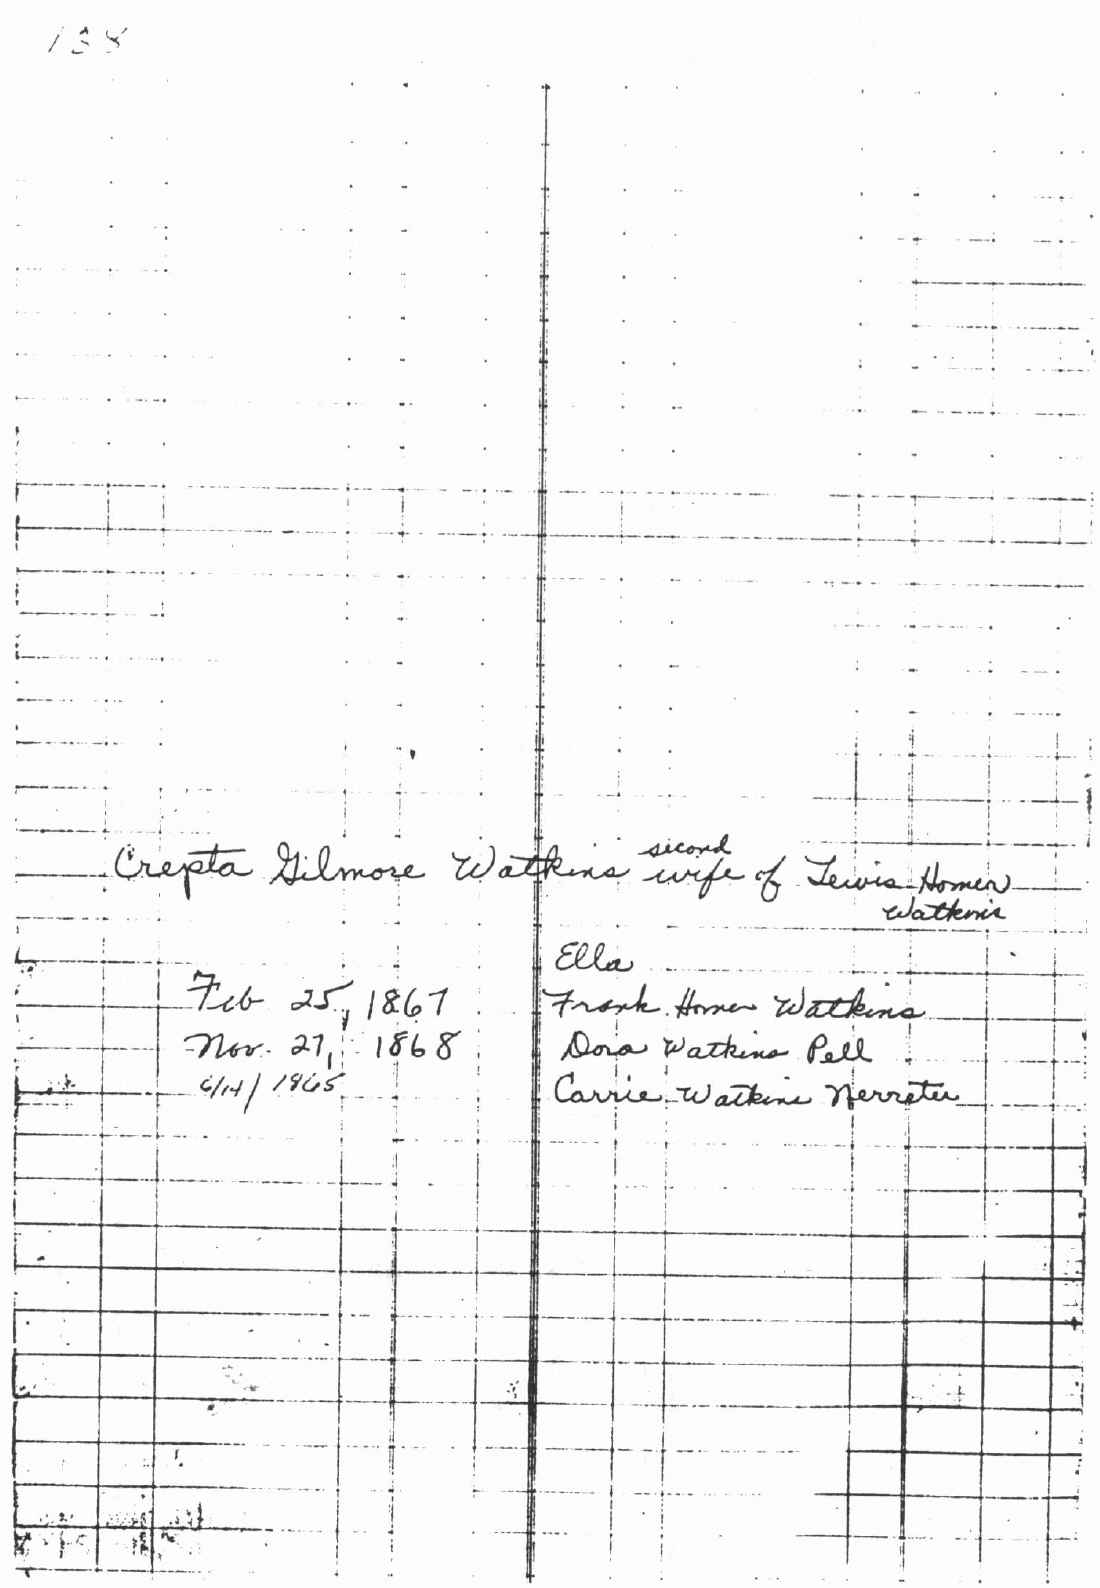 138
Crepta Gilmore Watkins second wife of Lewis Homer
Watkins
Ella
Feb 25, 1867 Frank Homer Watkins
Nov. 27, 1868 Dora Watkins Pell
6/14/1865 Carrie Watkins Nerreter